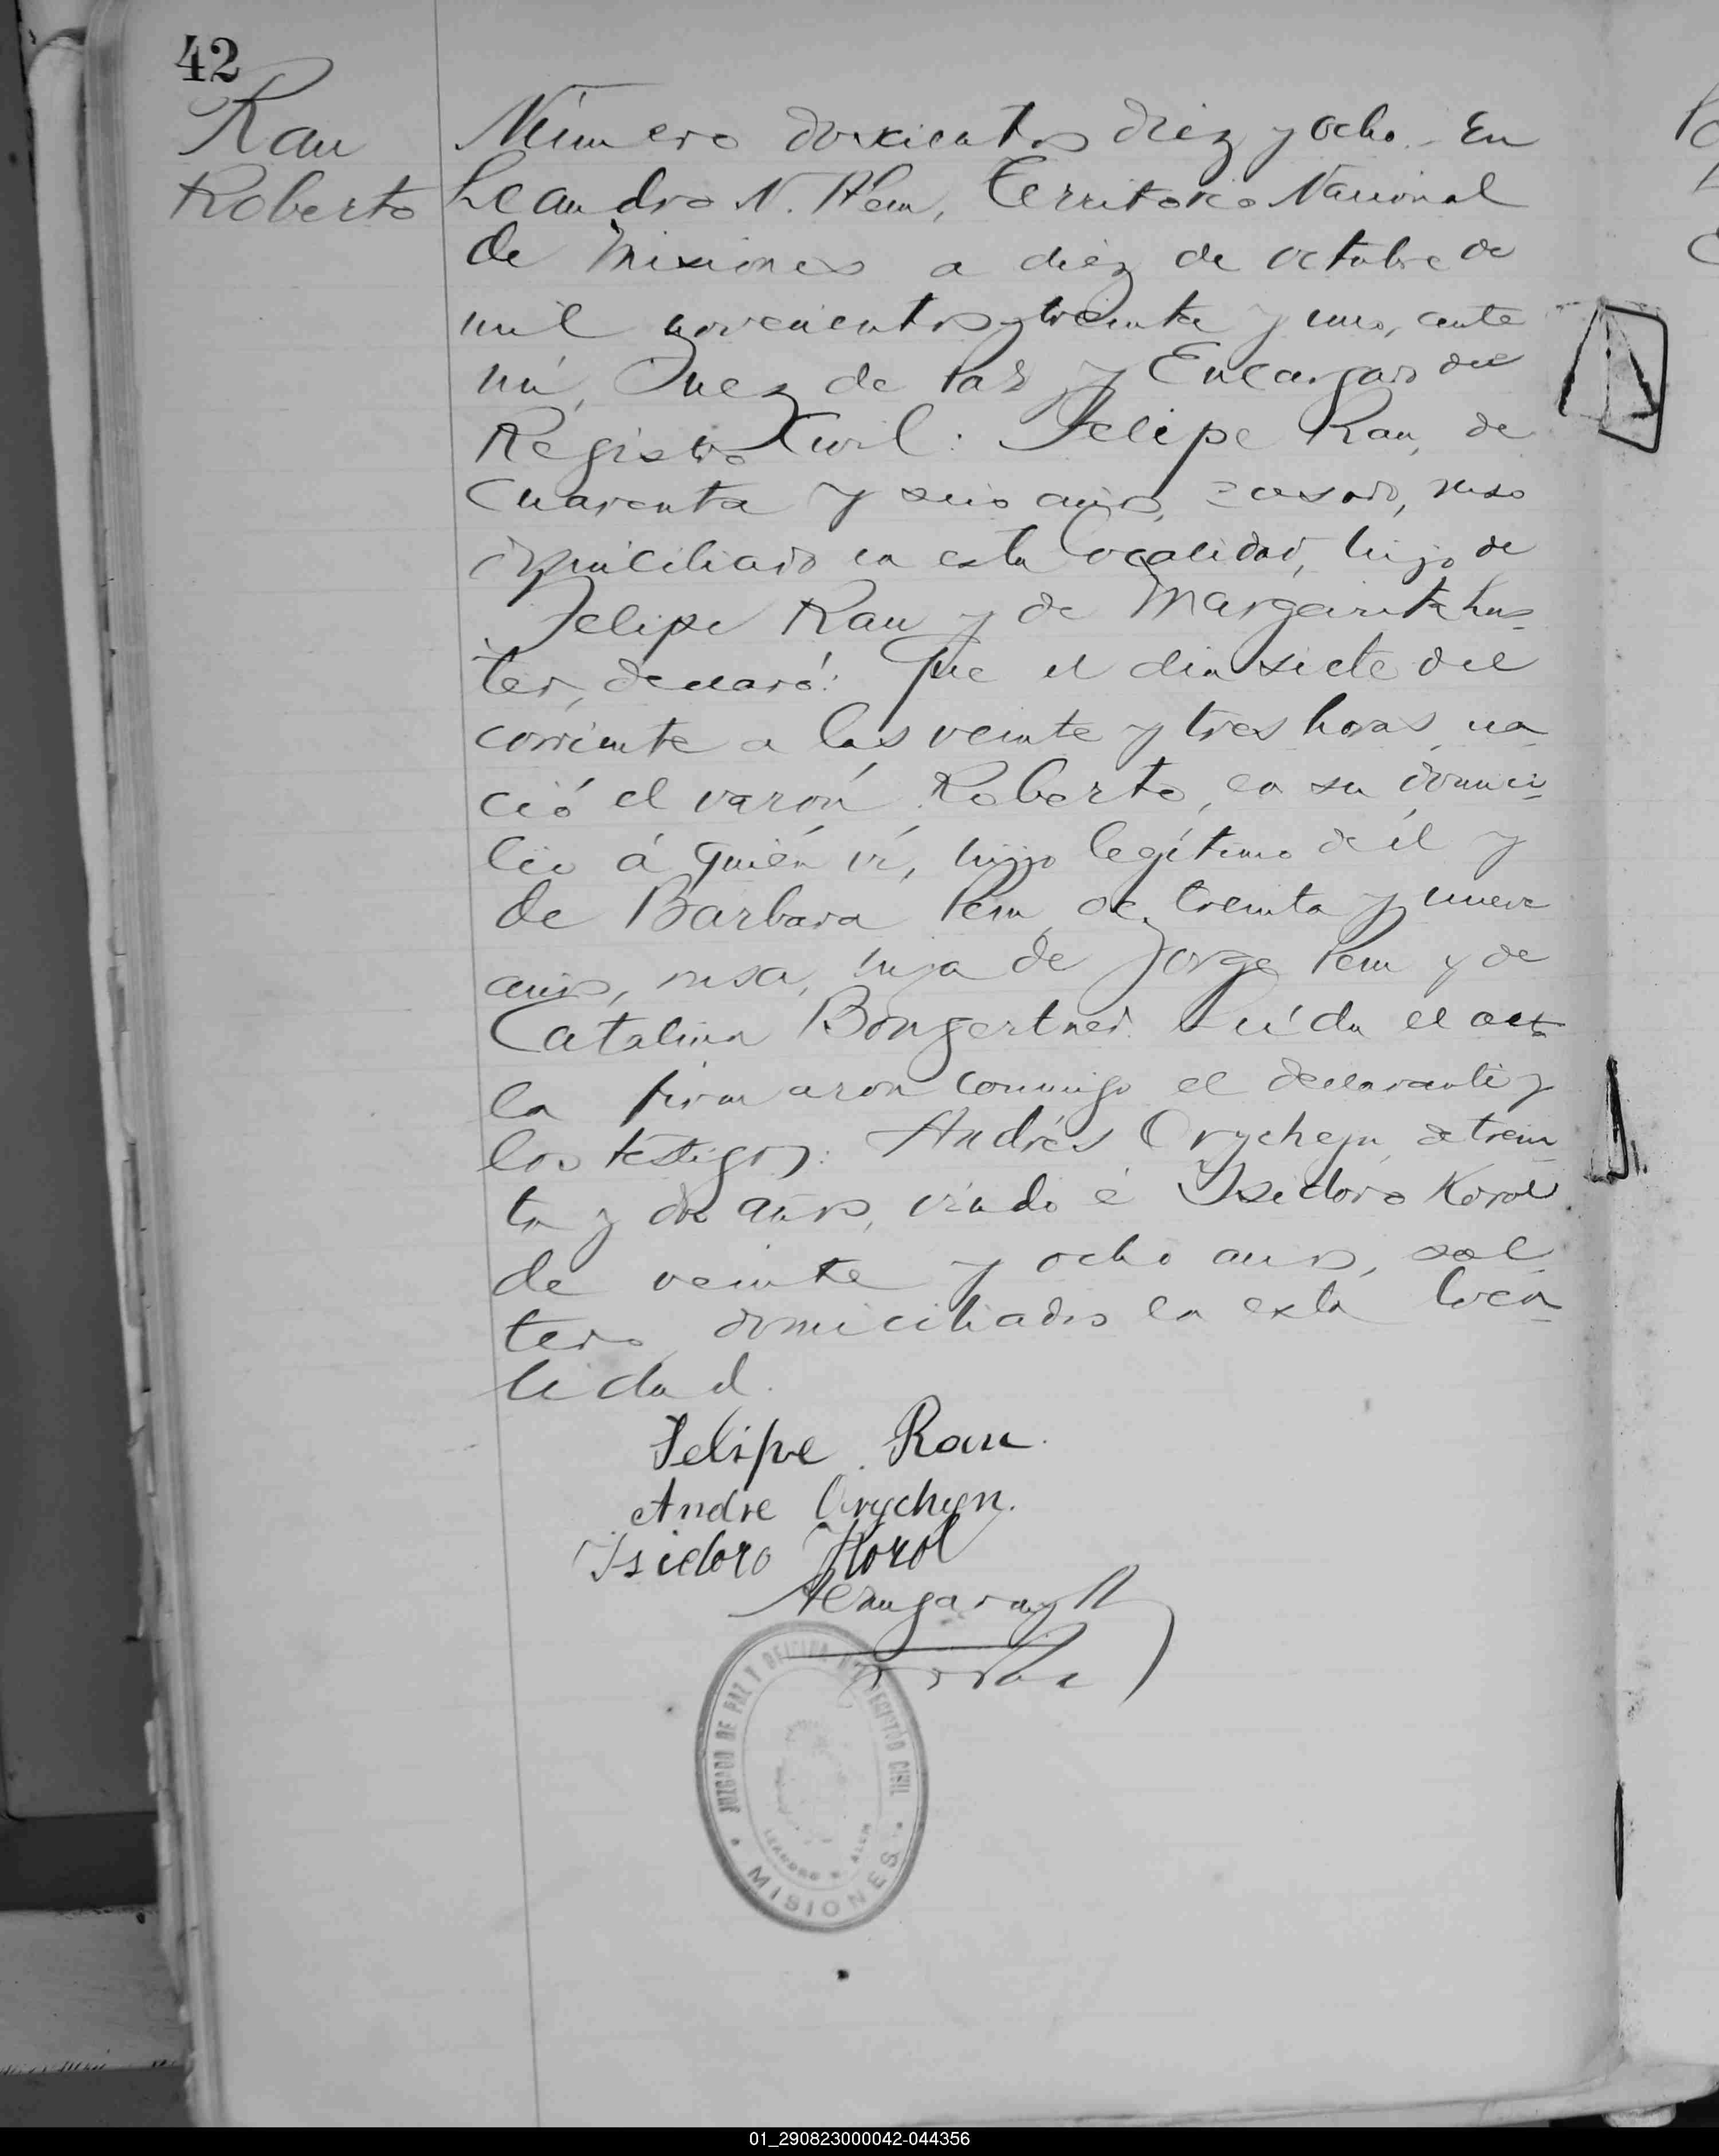 42
Rau
Roberto
Número doscientos diez y ocho.- En
Leandro N. Alem, Territorio Nacional
de Misiones a diez de octubre de
mil novecientos treinta y uno, ante
mí, Juez de Paz y Encargado del
Registro Civil: Felipe Rau, de
cuarenta y seis años, casado, ruso
domiciliado en esta localidad, hijo de
Felipe Rau y de Margarita Hus-
ter, declaró: Que el dia siete del
corriente a las veinte y tres horas, na
ció el varón Roberto, en su domici-
lio á quién ví, hijo legítimo de él y
de Barbara Pem, de treinta y nueve
años, rusa, hija de Jorge Pem y de
Catalina Bongertner. Leída el acta
la firmaron conmigo el declarante y
los testigos: Andrés Orychejn, de trein-
ta y dos años, viudo é Isidoro Korol
de veinte y ocho años, sol
tero, domiciliados en esta loca-
lidad.
Felipe Rau.
Andre Orychyn.
Isidoro Horol
JUZGADO DE PAZ Y OFICINA DEL REGISTRO CIVIL
LEANDRO N. ALEM
MISIONES
01_290823000042-044356